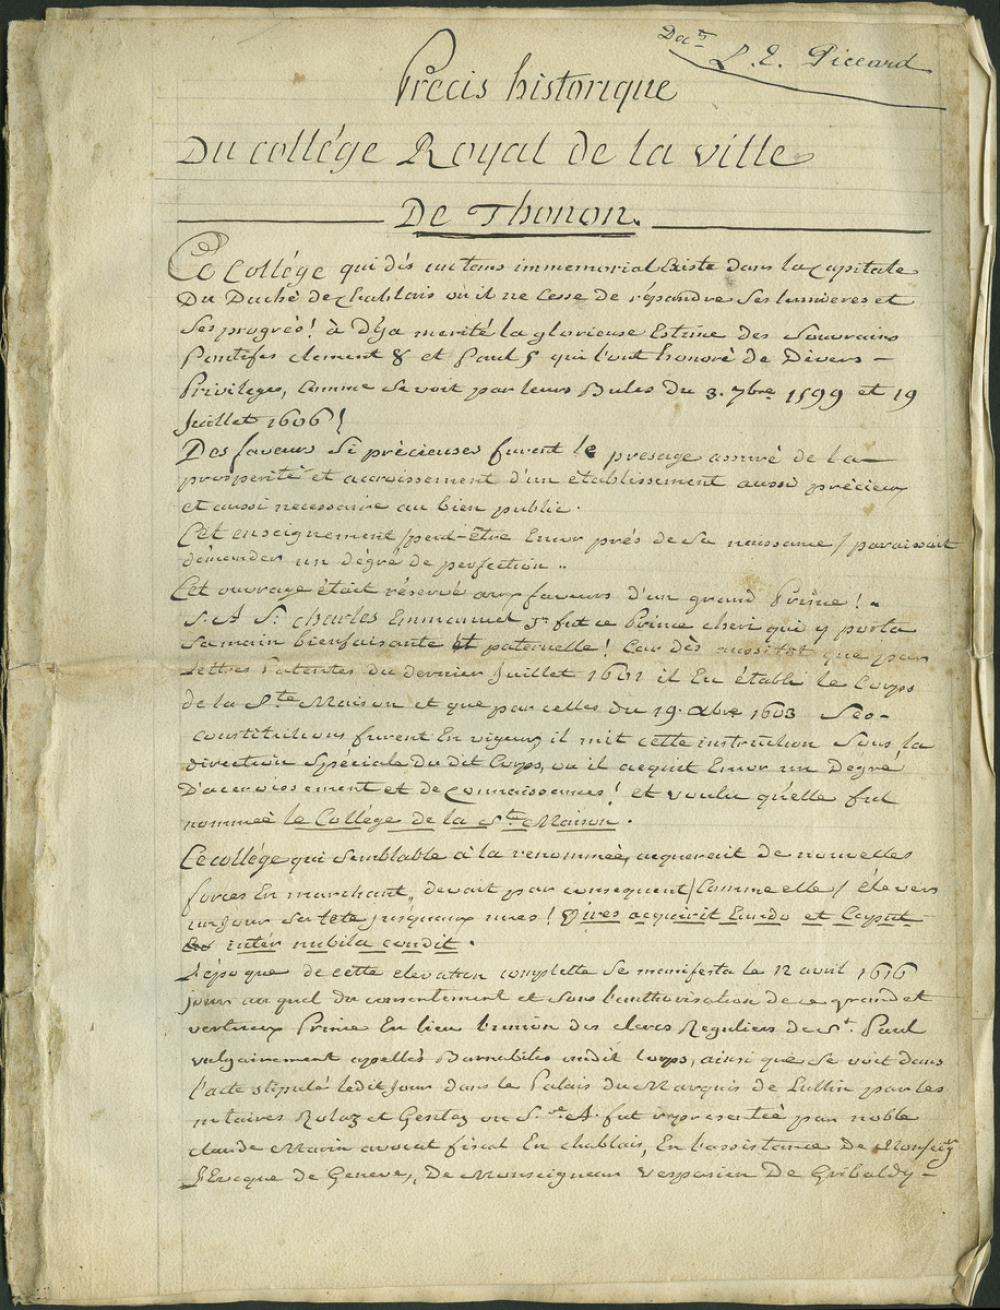 Don L. E. Piccard
Précis historique
Du collége Royal de la ville
De Thonon.
Ce Collége qui dés un tems immemorial Existe dans la Capitale
Du Duché de chablais où il ne Cesse de répandre Ses lumieres et
Ses progrès! à Déja merité la glorieuse Estime des Souverains
Pontifes clement 8 et Paul 5 qui l'ont honoré de Divers
Privileges, Comme Se voit par leurs Bules Du 3. 7bre 1599 et 19
Juillet 1606!
Des faveurs Si précieuses furent le présage assuré de la
prosperité et accroissement d'un établissement aussi précieux
et aussi necessaire au bien public.
Cet enseignement /peut-être Encor prés de Sa naissance/ paraissait
démander un dégré de perfection..
Cet ouvrage était réservé aux faveurs d'un grand Prince!
S. A S. Charles Emmanuel 1r fut ce Prince cheri qui y porta
Sa main bienfaisante et paternelle! Car Dès aussitot que par
Lettres Patentes du dernier Juillet 1601 il En établi le Corps
de la Ste Maison et que par celles du 19. Xbre 1603 Ses
constitutions furent En vigeur, il mit cette instruction Sous la
direction Spéciale Du dit Corps, ou il acquit Encor un Dégré
D'accroissement et de Connaissances! et voulu qu'elle fut
nommée le Collége de la Ste Maison.
Ce collége qui Semblable à la renommée, acquerait de nouvelles
forces En marchant, devait par consequent /Comme elle/ élever
un Jour Sa tête jusqu'aux nues! Vires acquirit Eundo et Caput
inter nubila condit.
L'époque de cette elevation complette Se manifesta le 12 avril 1616
jour au quel du consentement et Sous l'authorisation de ce grand et
vertueux Prince En lieu l'union des clercs Reguliers de St. Paul
vulgairement appellés Barnabites audit Corps, ainsi que Se voit dans
l'acte stipulé ledit Jour dans le Palais du Marquis de Lullin par les
notaires Rolaz et Gentaz ou S. A. fut représentée par noble
claude Marin avocat fiscal En chablais, En l'assistance De Monseigr
L'Eveque de Geneve, De Monseigneur Vespasien De Gribaldy